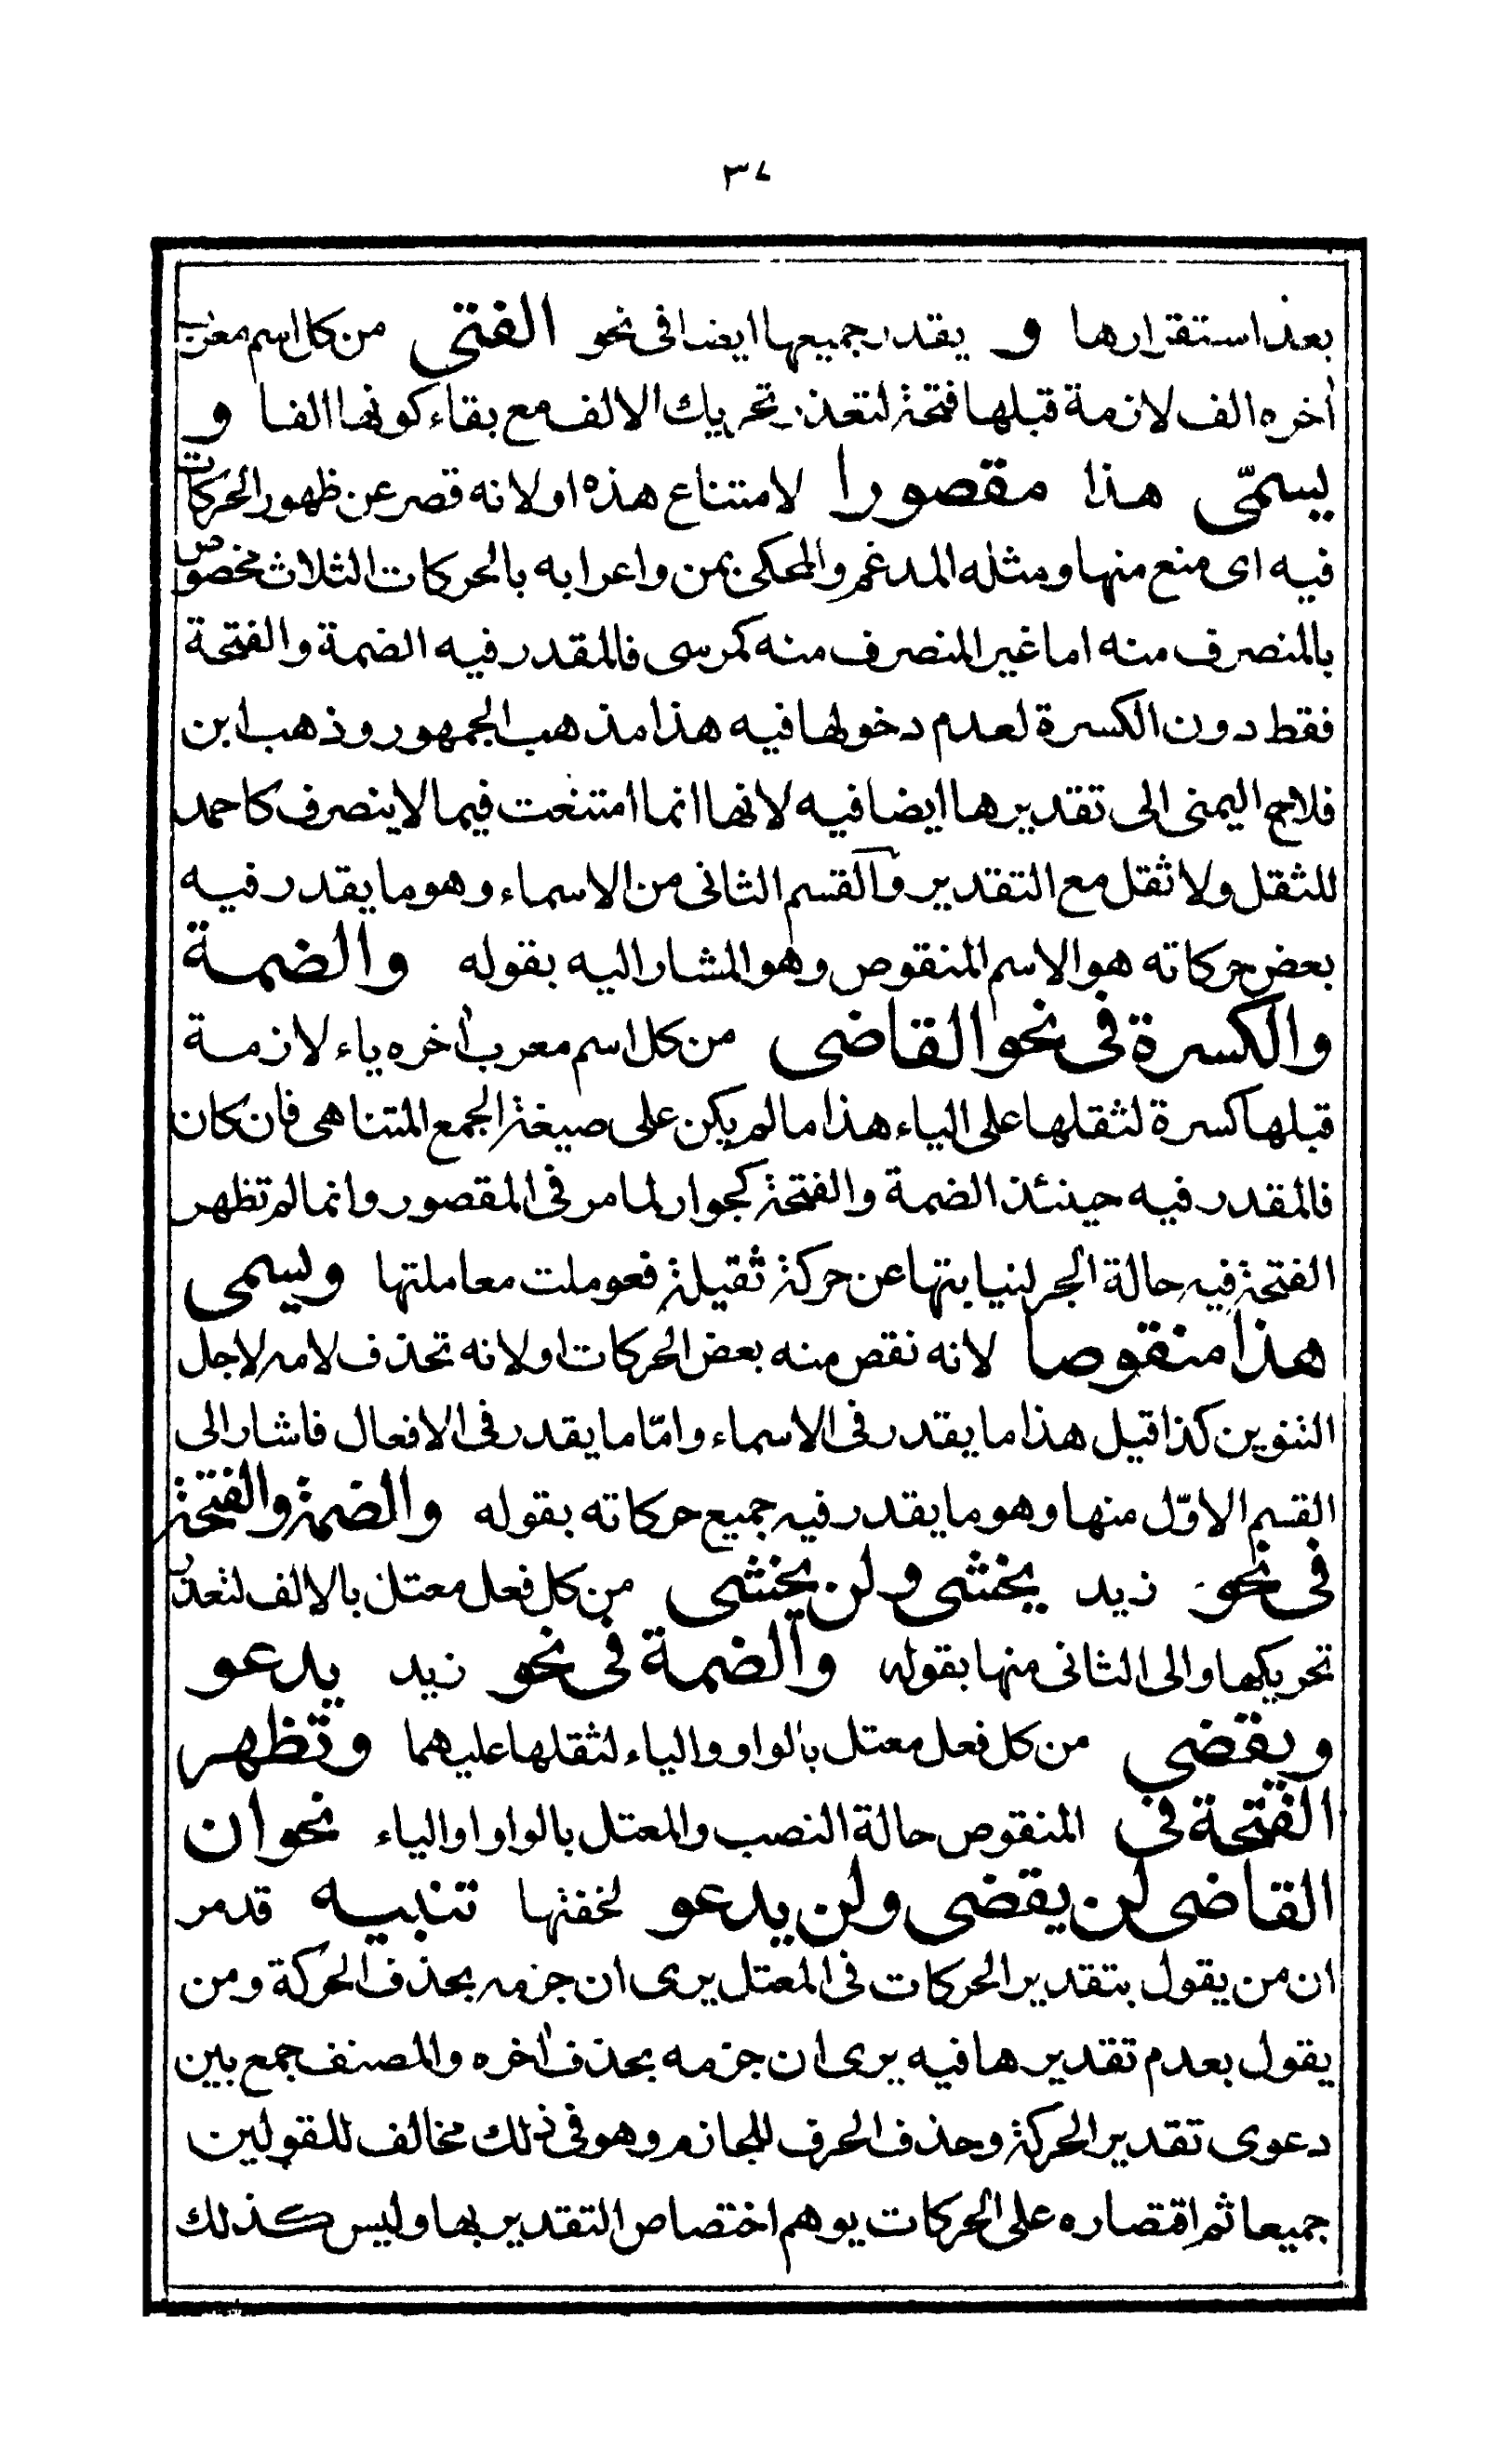 ٣٧
بعد استقرارها و يقدر جميعها ايضا فى نحو الفتى من كل اسم معرب
أخره الف لازمة قبلها فتحة لتعذر تحريك الالف مع بقاء كونها الفا و
يسمّى هذا مقصورا لامتناع هذه او لانه قصر عن ظهور الحركات
فيه اى منع منها ومثله المدغم والمحكى بمن واعرابه بالحركات الثلاث مخصوص
بالمنصرف منه اما غير المنصرف منه كمرسى فالمقدر فيه الضمة والفتحة
فقط دون الكسرة لعدم دخولها فيه هذا مذهب الجمهور وذهب ابن
فلاح اليمنى الى تقديرها ايضا فيه لانها انما امتنعت فيما لا ينصرف كاحمد
للثقل ولا ثقل مع التقدير والقسم الثانى من الاسماء وهو ما يقدر فيه
بعض حركاته هو الاسم المنقوص وهو المشار اليه بقوله والضمة
والكسرة فى نحو القاضى من كل اسم معرب أخره ياء لازمة
قبلها كسرة لثقلها على الياء هذا ما لم يكن على صيغة الجمع المتناهى فان كان
فالمقدر فيه حينئذ الضمة والفتحة كجوار لما مر فى المقصور وانما لم تظهر
الفتحة فيه حالة الجر لنيابتها عن حركة ثقيلة فعوملت معاملتها ويسمى
هذا منقوصا لانه نقص منه بعض الحركات او لانه تحذف لامه لاجل
التنوين كذا قيل هذا ما يقدر فى الاسماء وامّا ما يقدر فى الافعال فاشار الى
القسم الاوّل منها وهو ما يقدر فيه جميع حركاته بقوله والضمة والفتحة
فى نحو زيد يخشى ولن يخشى من كل فعل معتل بالالف لتعذر
تحريكها والى الثانى منها بقوله والضمة فى نحو زيد يدعو
ويقضى من كل فعل معتل بالواو والياء لثقلها عليهما وتظهر
الفتحة فى المنقوص حالة النصب والمعتل بالواو او الياء نحو ان
القاضى لن يقضى ولن يدعو لخفتها تنبيه قد مر
ان من يقول بتقدير الحركات فى المعتل يرى ان جزمه بحذف الحركة ومن
يقول بعدم تقديرها فيه يرى ان جزمه بحذف أخره والمصنف جمع بين
دعوى تقدير الحركة وحذف الحرف للجازم وهو فى ذلك مخالف للقولين
جميعا ثم اقتصاره على الحركات يوهم اختصاص التقدير بها وليس كذلك